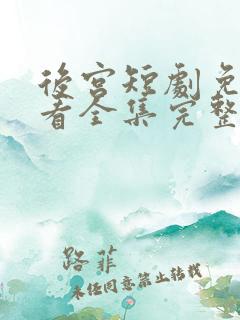 後宮短劇免
看全集完整
路菲
未經同意禁止轉載